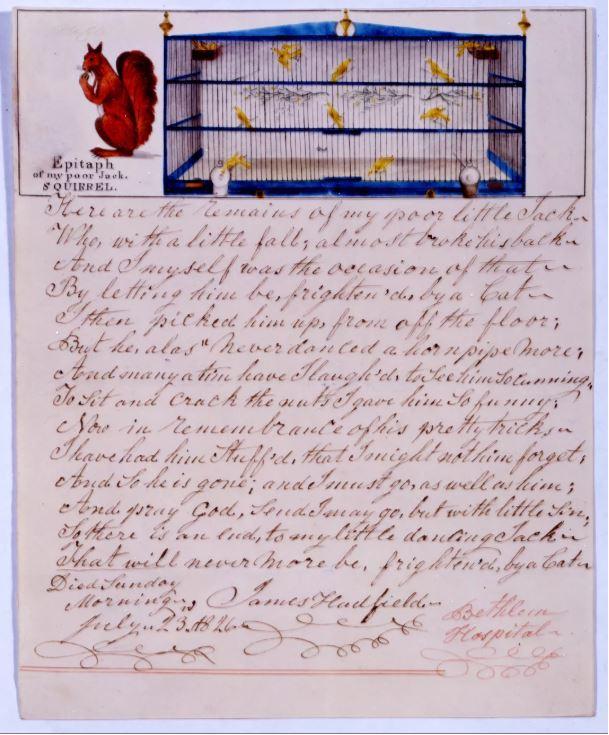 Epitaph
of my poor Jack.
SQUIRREL.
Here are the remains of my poor little Jack
Who, with a little fall, almost broke his back
And I myself was the occasion of that
By letting him be, frighten'd, by a Cat
I then, picked him up, from off the floor;
But he, alas" Never danced a hornpipe more;
And many a tim have I laugh'd, to See him So cunning,
To Sit and crack the nuts I gave him So funny;
Now in remembrance of his pretty tricks
I have had him Stuff'd, that I might not him forget;
And So he is gone; and I must go, as well as him;
And pray God, Send I may go, but with little Sin;
So there is an end, to my little dancing Jack
That will never more be, frighten'd, by a Cat
Died Sunday
Morning, James Hadfield
July 23. 1826
Bethlem
Hospital